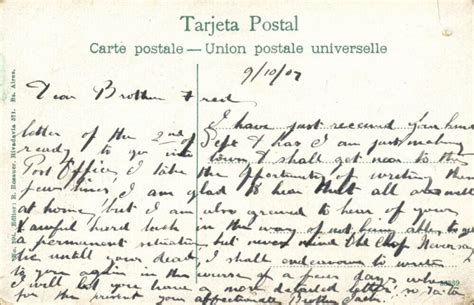 Tarjeta Postal
Carte postale — Union postale universelle
9/10/07
Dear Brother Fred
I have just received your kind
letter of the 2nd of Sept & as I am just making
ready to go into town, I shall get near to the
Post Office, I take the opportunity of writing these
few lines, I am glad to hear that all are well
at home, but I am also grieved to hear of your
awful hard luck in the way of not being able to get
a permanent situation, but never mind the chap Never say
die until your dead, I shall endeavour to write
to you again in the course of a few days when
I will let you have a more detailed letter, so Ta-ta
for the present your affectionate Brother
Editor R. Rosauer, Rivadavia 571. Bs. Aires.